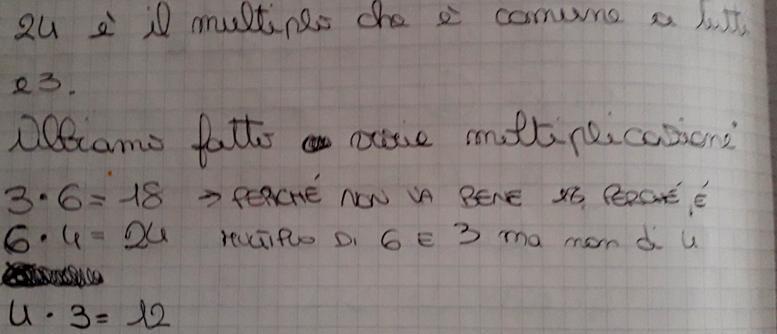 24 è il multiplo che è comune a tutti
e 3.
Abbiamo fatto varie moltiplicazioni
3·6=18 → PERCHÉ NON VA BENE PERCHÉ È
6·4=24 MULTIPLO DI 6 E 3 ma non di 4
4·3=12